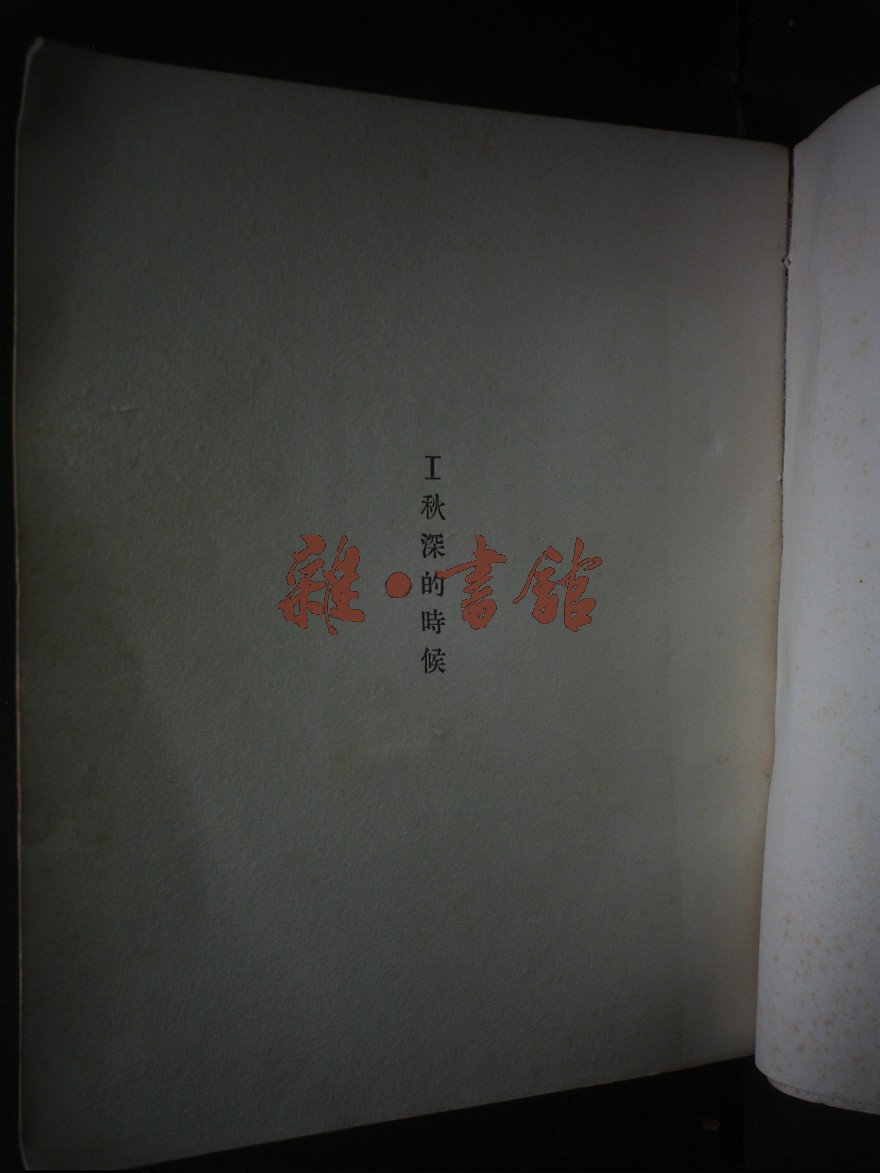 I秋深的時候
雜·書館